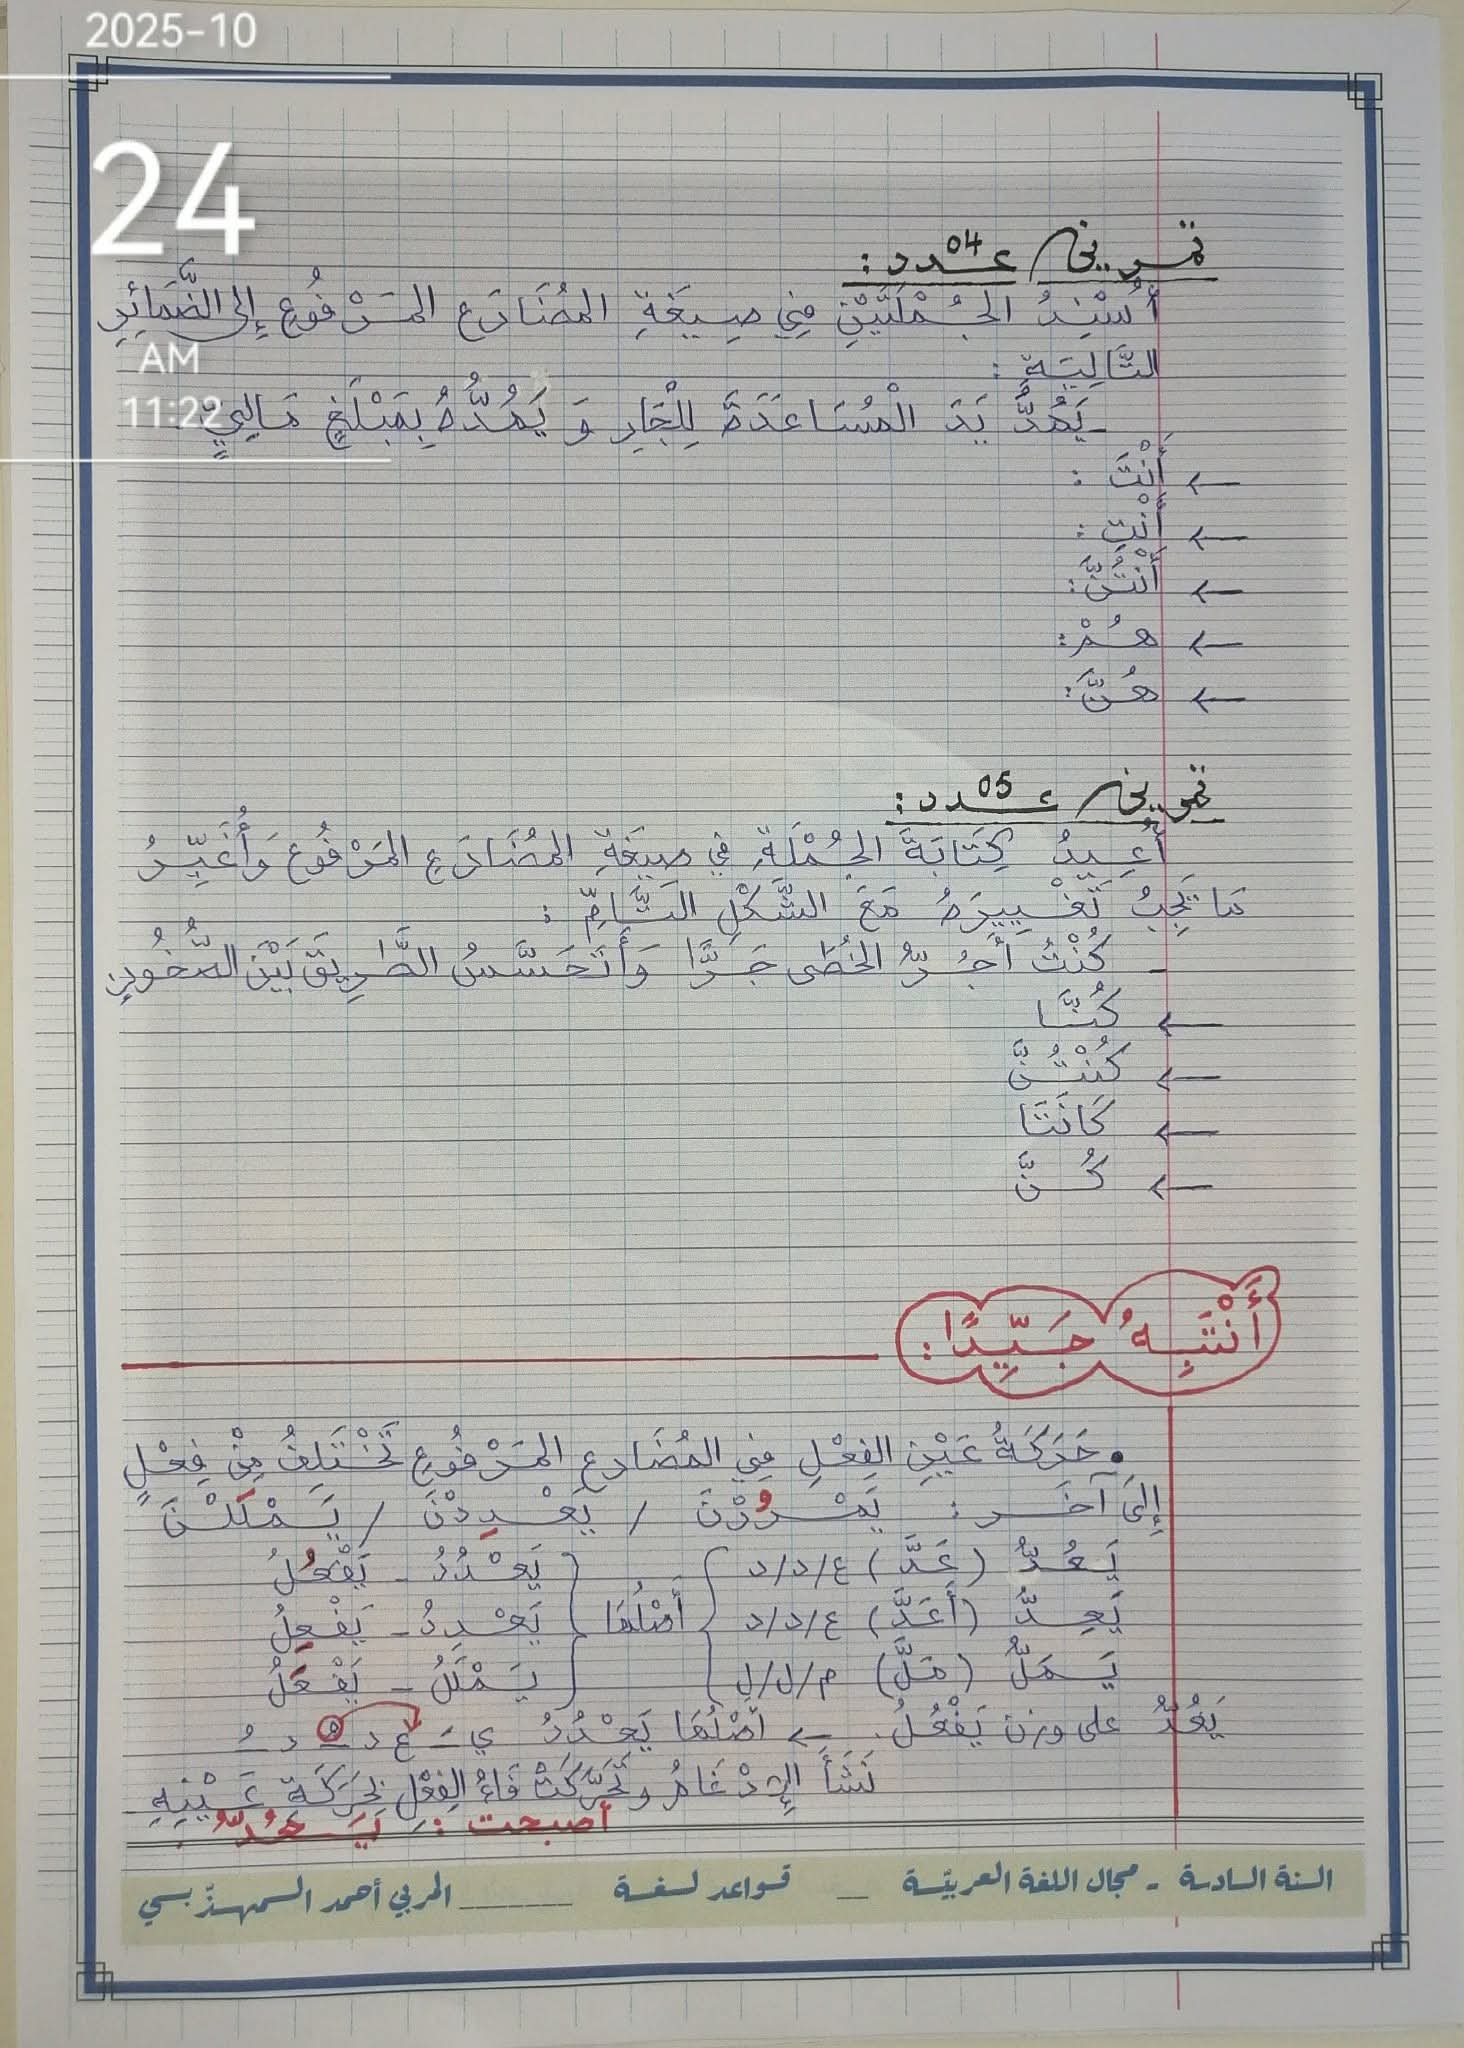 2025-10
24
AM
11:22
تمرين عــدد 04 :
أُسْنِدُ الجُمْلَتَيْنِ فِي صِيغَةِ المُضَارِعِ المَرْفُوعِ إِلى الضَّمَائِرِ
التَّالِيَةِ :
ـ يَمُدُّ يَدَ الْمُسَاعَدَةِ لِلْجَارِ وَ يَمُدُّهُ بِمَبْلَغٍ مَالِيٍّ
← أَنْتَ :
← أَنْتِ :
← أَنْتُنَّ:
← هُمْ:
← هُنَّ:
تمرين عــدد 05 :
أُعِيدُ كِتَابَةَ الجُمْلَةِ في صِيغَةِ المُضَارِعِ المَرْفُوعِ وَأُغَيِّرُ
مَا يَجِبُ تَغْيِيرَهُ مَعَ الشَّكْلِ التَّامِّ :
ـ كُنْتُ أَجُرُّ الخُطَى جَرًّا وَأَتَحَسَّسُ الطَّرِيقَ بَيْنَ الصُّخُورِ
← كُنَّا
← كُنْتُنَّ
← كَانَتَا
← كُنَّ
أَنْتَبِهُ جَيِّدًا :
• حَرَكَةُ عَيْنِ الفِعْلِ فِي المُضَارِعِ المَرْفُوعِ تَخْتَلِفُ مِنْ فِعْلٍ
إِلَى آخَر : يَمْرُرْنَ / يَعْدِدْنَ / يَمْلَلْنَ
يَعُدُّ (عَدَّ) ع/د/د } أَصْلُهَا { يَعْدُدُ ـ يَفْعُلُ
يَعِدُّ (أَعَدَّ) ع/د/د } أَصْلُهَا { يَعْدِدُ ـ يَفْعِلُ
يَمَلُّ (مَلَّ) م/ل/ل } أَصْلُهَا { يَمْلَلُ ـ يَفْعَلُ
يَعُدُّ على وزن يَفْعُلُ. ← أَصْلُهَا يَعْدُدُ ي ـَ ع د ـُ د ـُ
نَشَأَ الإِدْغَامُ وتَحَرَّكَتْ فَاءُ الفِعْلِ بِحَرَكَةِ عَيْنِهِ
أصبحت : يَعُدُّ
السنة السادسة ـ مجال اللغة العربيّة ـ قواعد لغة ـــــ المربي أحمد السمهدّبسي